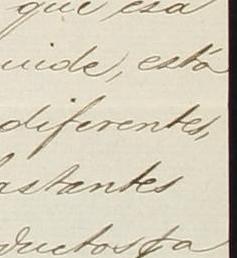 que esa
uide, está
diferentes,
bastantes
ductos, a